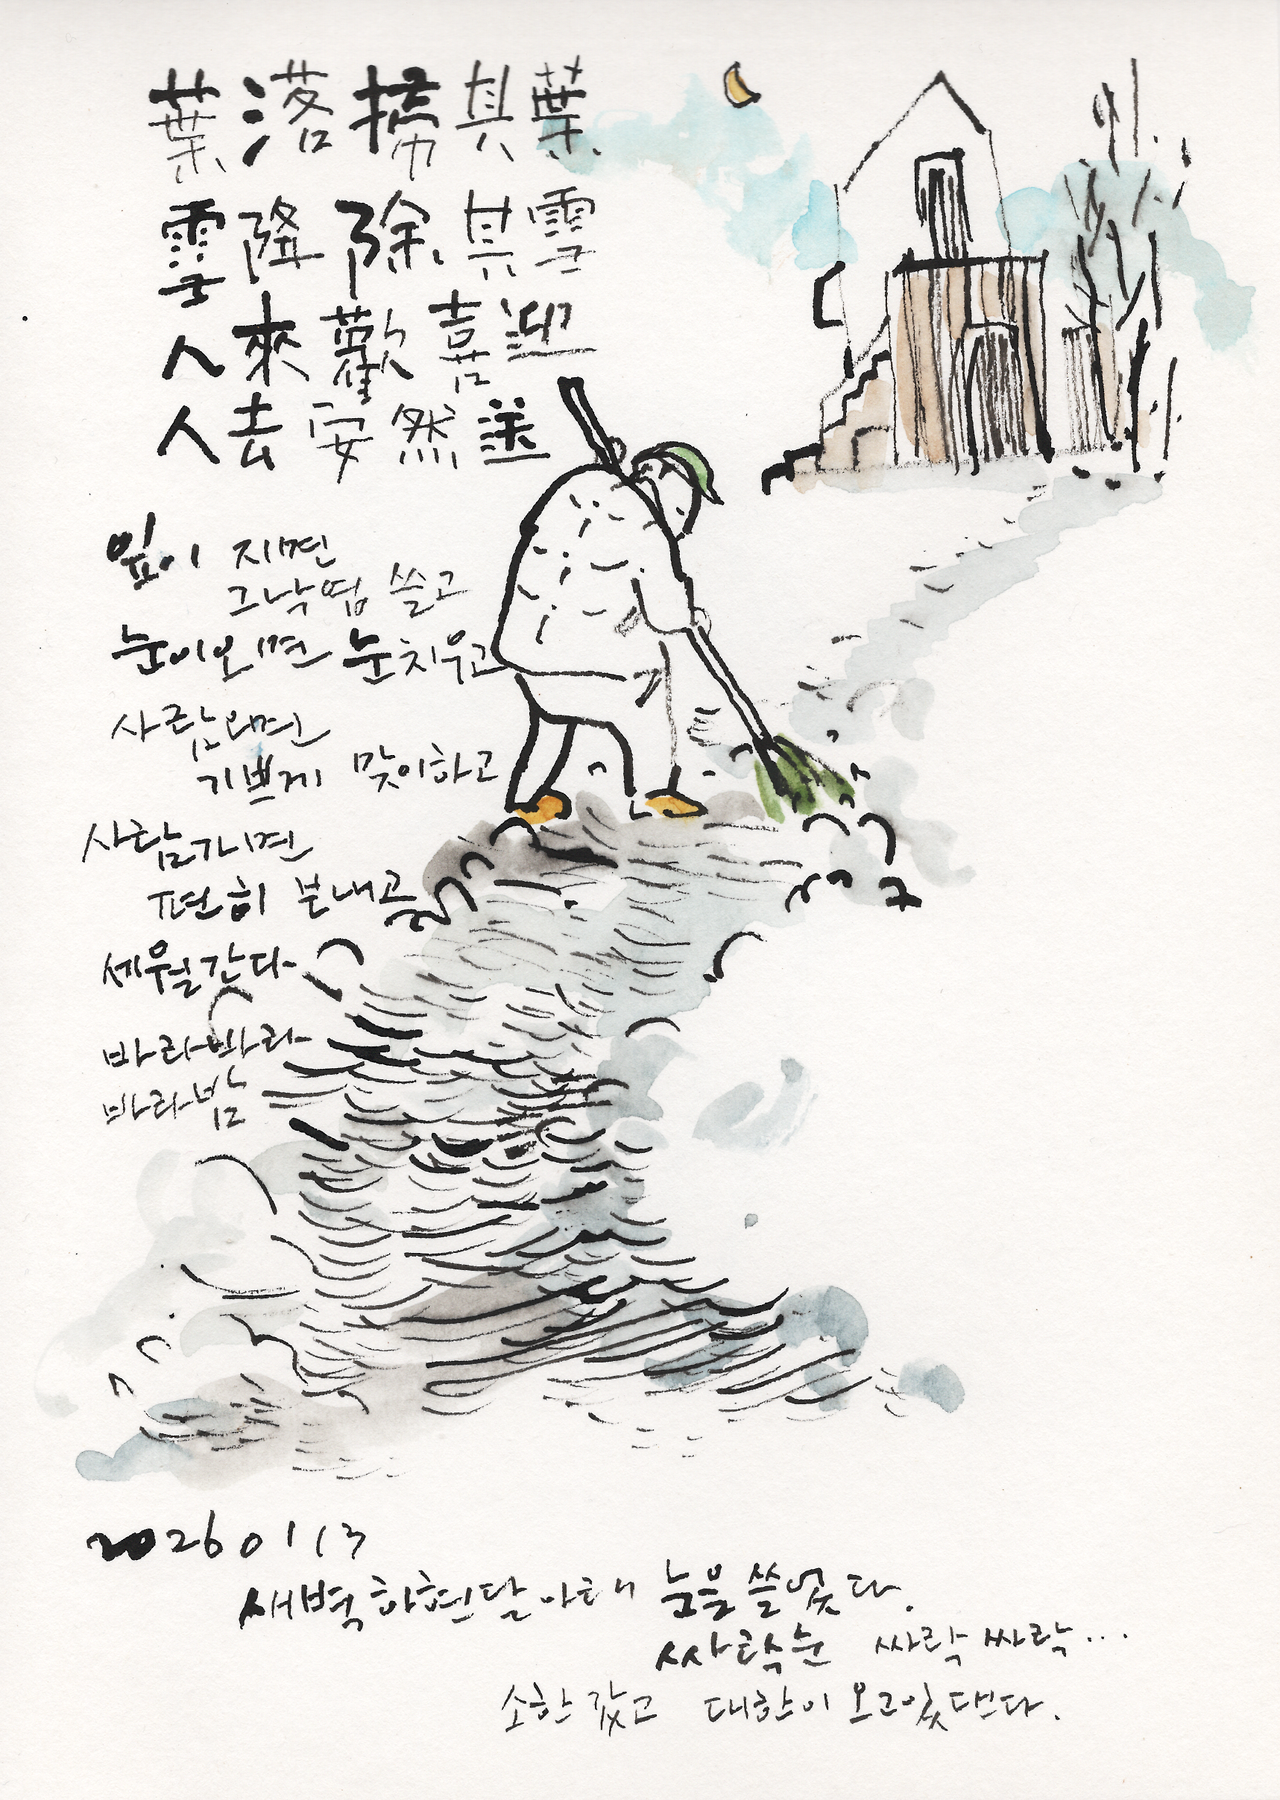 葉落掃其葉
雪降除其雪
人來歡喜迎
人去安然送
잎이 지면
그 낙엽 쓸고
눈이 오면 눈 치우고
사람 오면
기쁘게 맞이하고
사람 가면
편히 보내고
세월 간다
바라바라
바라밤
20260113
새벽 하현달 아래 눈을 쓸었다.
싸락눈 싸락싸락...
소한 갔고 대한이 오고 있댄다.